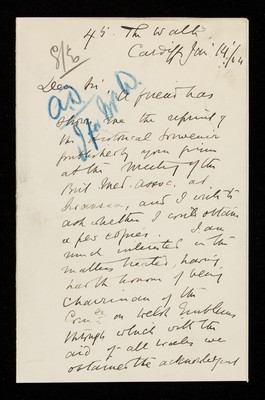 45. The Walk
Cardiff Jan 14/04
Dear Sir A friend has
shown me the reprint of
the historical souvenir
published by your firm
at the Meeting of the
Brit Med. Assoc. at
Swansea, and I write to
ask whether I could obtain
a few copies. I am
much interested in the
matters treated, having
had the honour of being
Chairman of the
Comee on Welsh Emblems
through which with the
aid of all Wales we
obtained the acknowledgmt